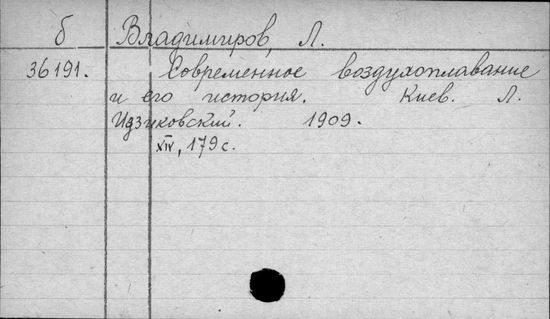 б Владимиров, Л.
36191. Современное воздухоплавание
и его история. Киев. Л.
Идзиковский. 1909.
XIV, 179 с.